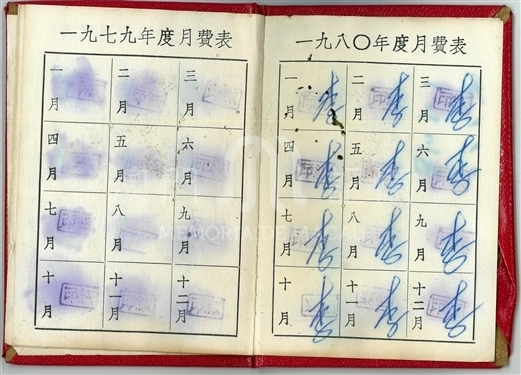 一九七九年度月費表
一月 二月 三月
四月 五月 六月
七月 八月 九月
十月 十一月 十二月
一九八〇年度月費表
一月 李 二月 李 三月 李
四月 李 五月 李 六月 李
七月 李 八月 李 九月 李
十月 李 十一月 李 十二月 李